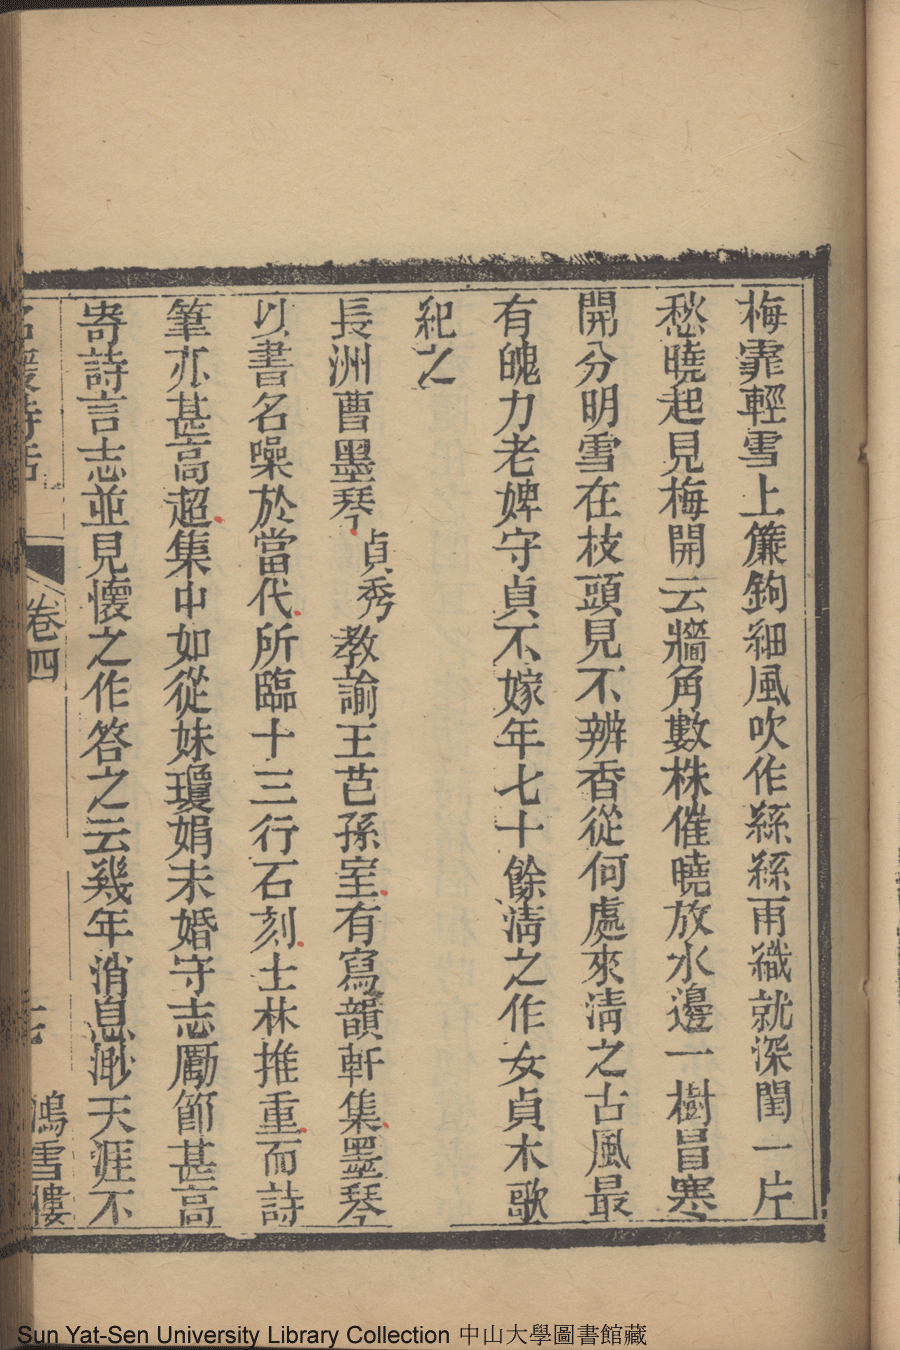 梅霏輕雪上簾鉤細風吹作絲絲雨織就深閨一片
愁曉起見梅開云牆角數株催曉放水邊一樹冒寒
開分明雪在枝頭見不辨香從何處來清之古風最
有魄力老婢守貞不嫁年七十餘清之作女貞木歌
紀之
長洲曹墨琴貞秀教諭王芑孫室有寫韻軒集墨琴
以書名噪於當代所臨十三行石刻士林推重而詩
筆亦甚高超集中如從妹瓊娟未婚守志勵節甚高
寄詩言志並見懷之作答之云幾年消息渺天涯不
名媛詩話 卷四 七 鴻雪樓
Sun Yat-Sen University Library Collection 中山大學圖書館藏